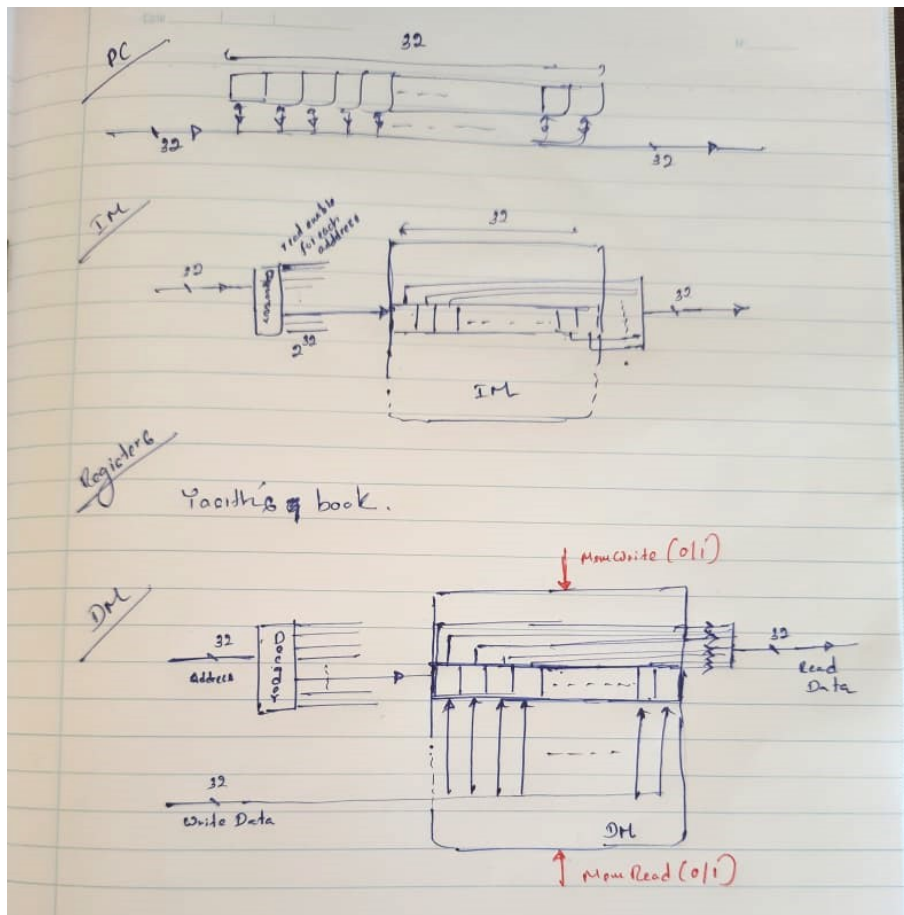 PC
32
32
32
IM
read enable
for each
address
32
32
2^32
32
IM
Registers
book.
MemWrite (0/1)
DM
32
Address
Decoder
32
Read
Data
32
Write Data
DM
MemRead (0/1)